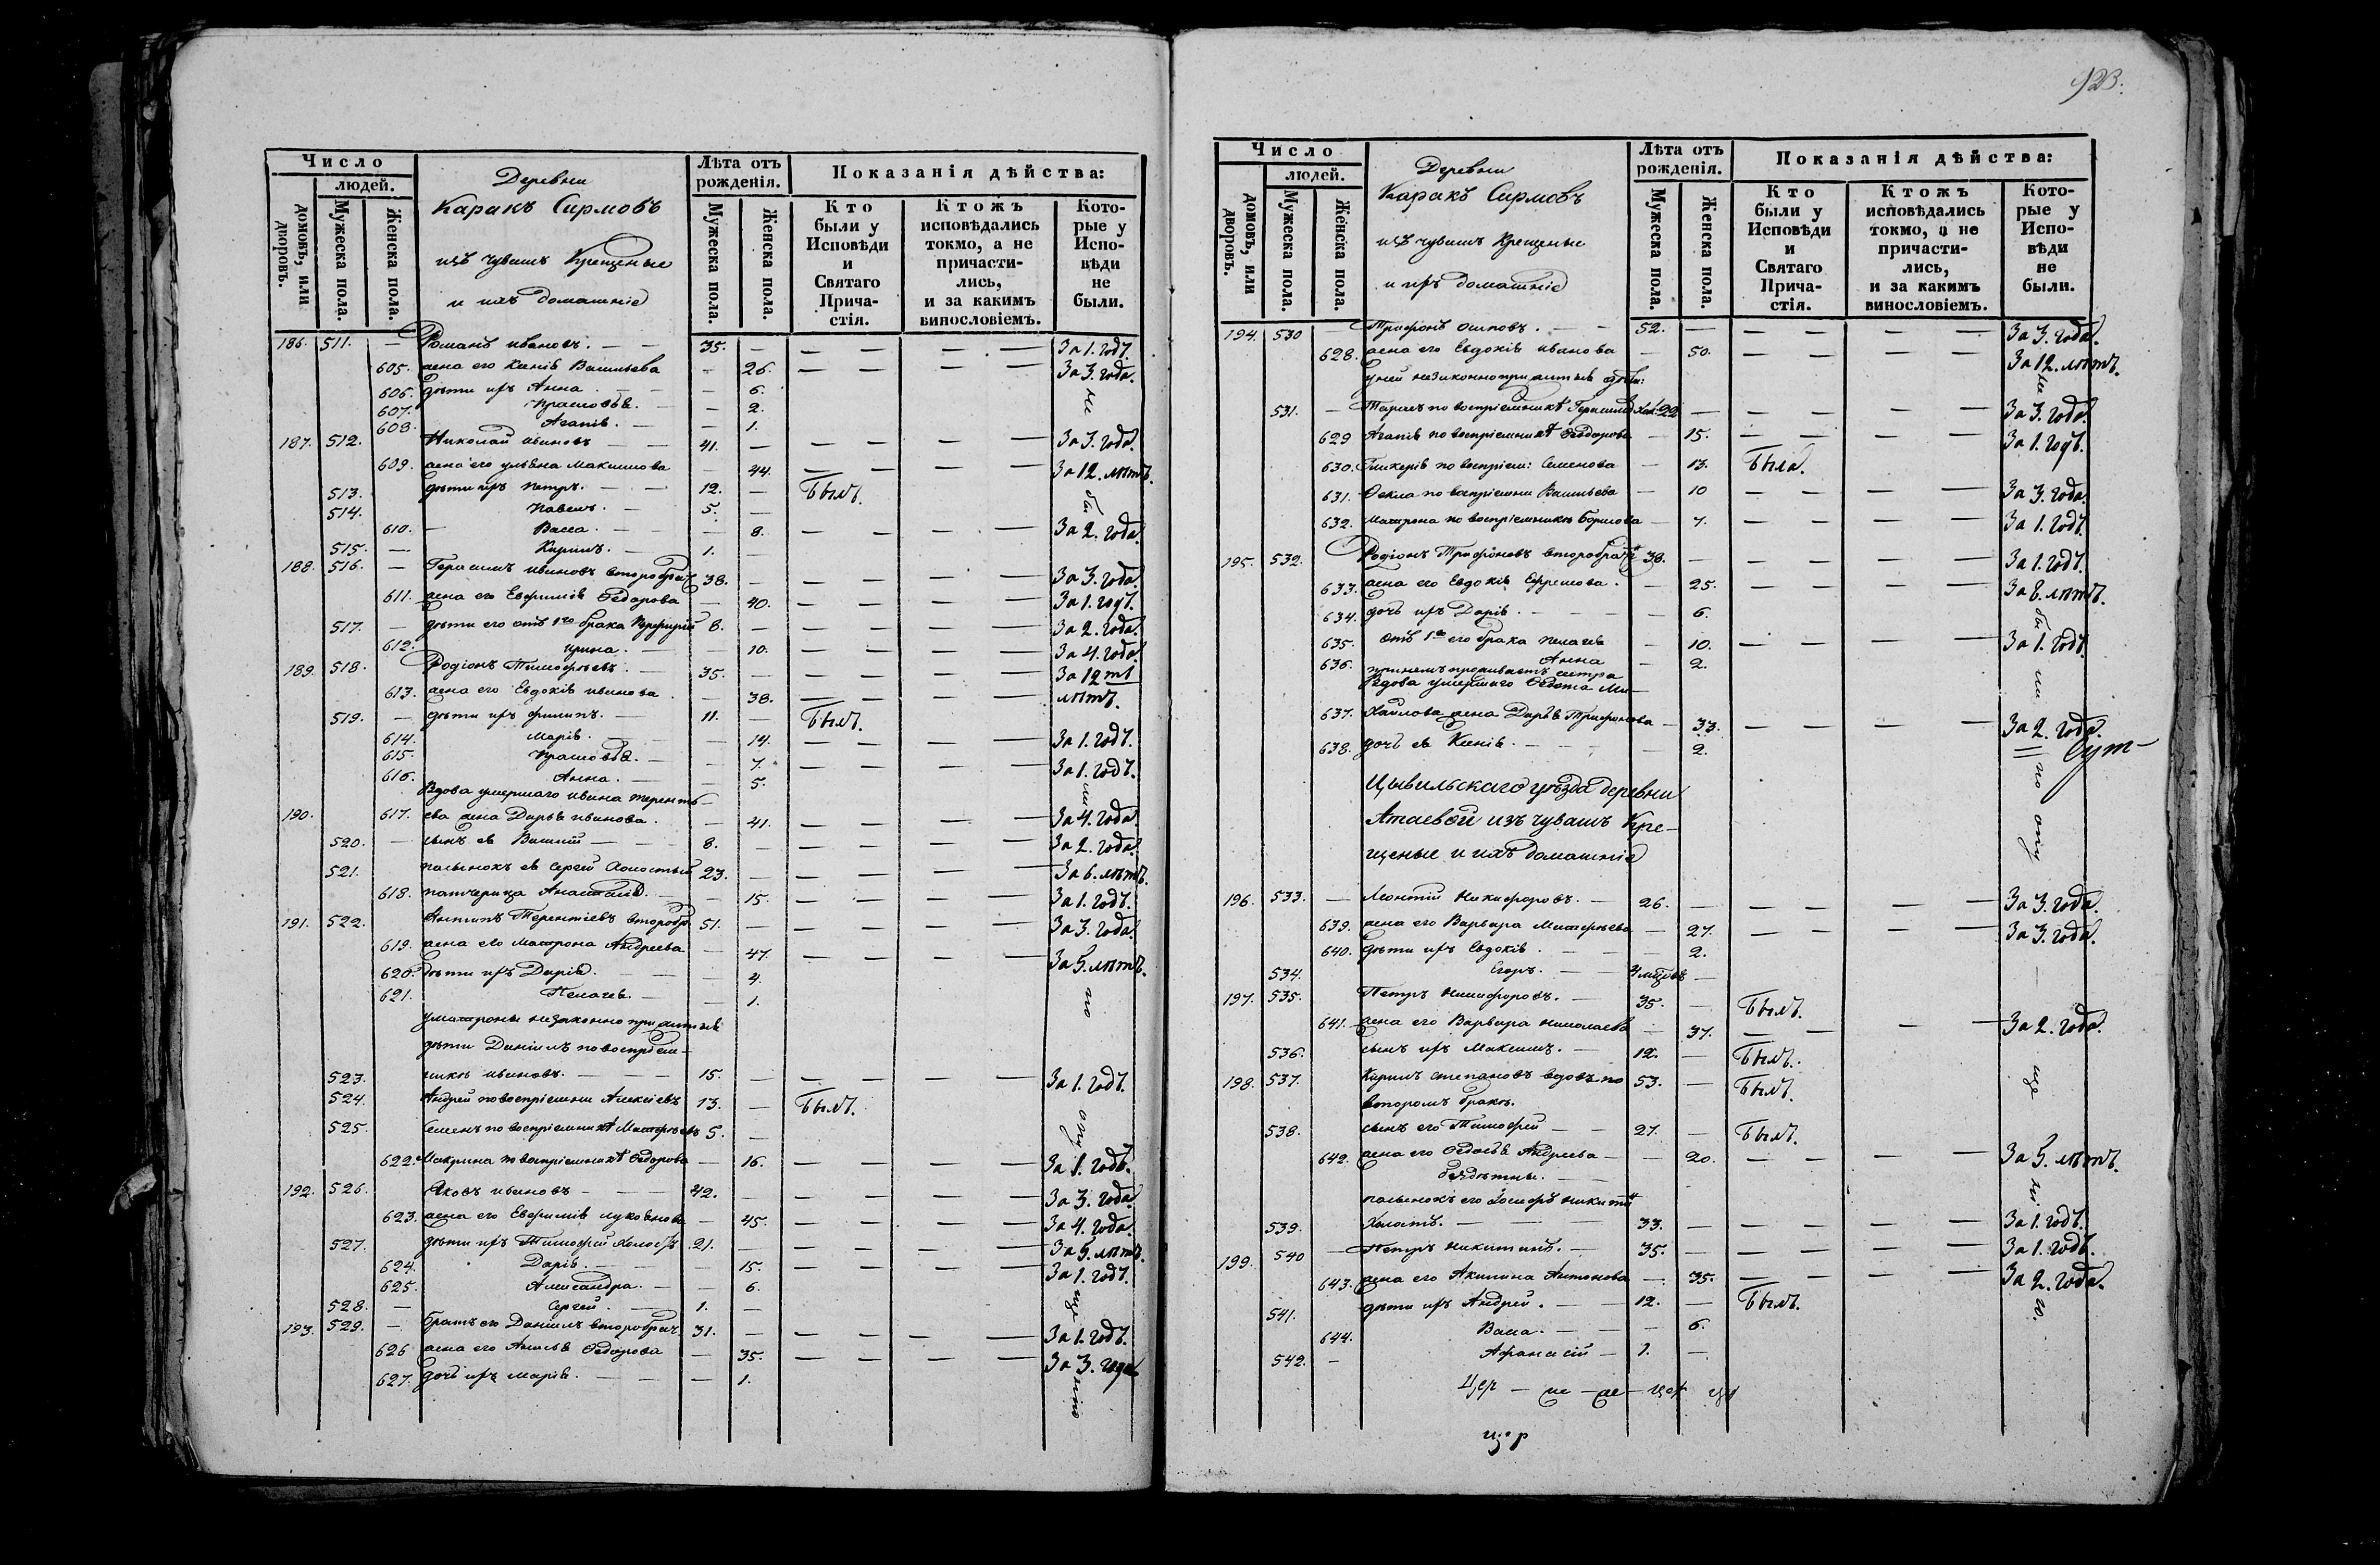 Число
людей.
домовъ, или дворовъ.
Мужеска пола.
Женска пола.
Деревни
Каракъ Сирмовъ
изъ чувашъ Крещеные
и ихъ домашніе
Лѣта отъ рожденія.
Мужеска пола.
Женска пола.
Показанія дѣйства:
Кто были у Исповѣди и Святаго Прича-стія.
Ктожъ исповѣдались токмо, а не причасти-лись, и за какимъ винословіемъ.
Кото-рые у Испо-вѣди не были.
186. 511. — Романъ Ивановъ. — — 35. — — — — — За 1. годъ.
605. жена его Ксенія Васильева — 26. — — — — За 3. года.
606. дѣти ихъ Анна — — 6.
607. Прасковья. — — 2.
608. Агапія. — — 1.
187. 512. Николай Ивановъ — — 41. — — — — — За 3. года.
609. жена его Ульяна Максимова — 44. — — — — За 12. лѣтъ.
513. дѣти ихъ Петръ. — — 12. — Былъ.
514. Павелъ. — 5. —
610. — Васса. — — 8. — — — — За 2. года.
515. — Кирилъ. — 1. —
188. 516. — Герасимъ Ивановъ второбрач 38. — — — — — За 3. года.
611. жена его Евфимія Ѳедорова — 40. — — — — За 1. годъ.
517. — дѣти его отъ 1го брака 8. — — — — — За 2. года.
612. Ирина. — — 10. — — — — За 4. года.
189. 518. Родіонъ Тимофѣевъ. — 35. — — — — — За 12ть
613. жена его Евдокія Иванова — 38. — — — — лѣтъ.
519. — дѣти ихъ Филипъ. — 11. — Былъ.
614. Марія. — — 14. — — — — За 1. годъ.
615. Прасковья. — — 7. — — — — За 1. годъ.
616. Анна. — — 5.
Вдова умершаго Ивана Теренть-
190. 617. ева жена Дарья Иванова. — 41. — — — — За 4. года
520. — сынъ ея Василій — — 8. — — — — — За 2. года.
521. пасынокъ ея Сергей Холостый 23. — — — — — За 6. лѣтъ.
618. патчерица Анастасія. — — 15. — — — — За 1. годъ.
191. 522. Антипъ Терентіевъ второбр. 51. — — — — — За 3. года.
619. жена его Матрона Андреева — 47. — — — — За 5. лѣтъ.
620. дѣти ихъ Дарія. — — 4.
621. Пелагея. — — 1.
у матроны незаконно прижитые
дѣти Даніилъ по воспріем-
523. никѣ Ивановъ. — — 15. — — — — — За 1. годъ.
524. Андрей по воспріемни Алексіевъ 13. — Былъ.
525. Семенъ по воспріемникѣ Матфѣевъ 5. —
622. Макрина по воспріемникѣ Ѳедорова — 16. — — — — За 1. годъ.
192. 526. Яковъ Ивановъ — — 42. — — — — — За 3. года.
623. жена его Евфимія Лукоянова — 45. — — — — За 4. года.
527. дѣти ихъ Тимофей Холостъ 21. — — — — — За 5. лѣтъ.
624. Дарія. — — 15. — — — — За 1. годъ.
625. Александра. — — 6.
528. — Сергей. — 1. —
193. 529. — братъ его Даніилъ второбрач. 31. — — — — — За 1. годъ.
626 жена его Ѳедорова — 35. — — — — За 3. года
627. дочь ихъ Марія. — — — 1.
Число
людей.
домовъ, или дворовъ.
Мужеска пола.
Женска пола.
Деревни
Каракъ Сирмовъ
изъ чувашъ Крещеные
и ихъ домашніе
Лѣта отъ рожденія.
Мужеска пола.
Женска пола.
Показанія дѣйства:
Кто были у Исповѣди и Святаго Прича-стія.
Ктожъ исповѣдались токмо, а не причасти-лись, и за какимъ винословіемъ.
Кото-рые у Испо-вѣди не были.
194. 530 — Трифонъ Осиповъ. — — 52. — — — — — За 3. года.
628. жена его Евдокія Иванова — 50. — — — — За 12. лѣтъ.
у ней незаконноприжитые дѣти:
531. — Тарасъ по воспріемникѣ Герасимовъ Хол: 22 — — — — — За 3. года.
629 Агапія по воспріемникѣ Ѳеодорова — 15. — — — — За 1. годъ.
630. Гликерія по воспріем: Семенова — 13. Была.
631. Ѳекла по воспріемни Васильева — 10 — — — — За 3. года.
632. Матрона по воспріемникѣ Борисова — 7. — — — — За 1. годъ.
195. 532. Родіонъ Трифоновъ второбрач 38. — — — — — За 1. годъ.
633. жена его Евдокія Ефремова. — 25. — — — — За 8. лѣтъ.
634. дочь ихъ Дарія. — — — 6.
635. отъ 1го его брака Пелагея — 10. — — — — За 1. годъ.
636. Анна — 2.
при немъ проживаетъ сестра
Вдова умершаго Ѳедота Ми-
637. хайлова жена Дарья Трифонова — 33. — — — — За 2. года.
638. дочь ея Ксенія. — — — 2.
Цывильскаго уѣзда деревни
Атаевой изъ чувашъ Кре-
щеные и ихъ домашніе
196. 533. — Леонтій Никифоровъ. — 26. — — — — — За 3. года.
639. жена его Варвара Матфѣева — 27. — — — — За 3. года.
640. дѣти ихъ Евдокія — — — 2.
534. Егоръ. — — —
197. 535. Петръ Никифоровъ. — 35. — Былъ.
641. жена его Варвара Николаева — 37. — — — — За 2. года.
536. сынъ ихъ Максимъ. — 12. — Былъ.
198. 537. Кирилъ Степановъ вдовъ по 53. — Былъ.
второмъ бракѣ.
538. сынъ его Тимофей — — 27. — Былъ.
642. жена его Ѳедосья Андреева — — 20. — — — — За 5. лѣтъ.
бездѣтны.
пасынокъ его Іосифъ Никитинъ
539. Холостъ. — — — 33. — — — — — За 1. годъ.
199. 540 — Петръ Никитинъ. — 35. — — — — — За 1. годъ.
643. жена его Акилина Антонова — 35. — — — — За 2. года.
541. дѣти ихъ Андрей. — — 12. — Былъ.
644. Васса. — — — 6.
542. — Афанасій — 1. —